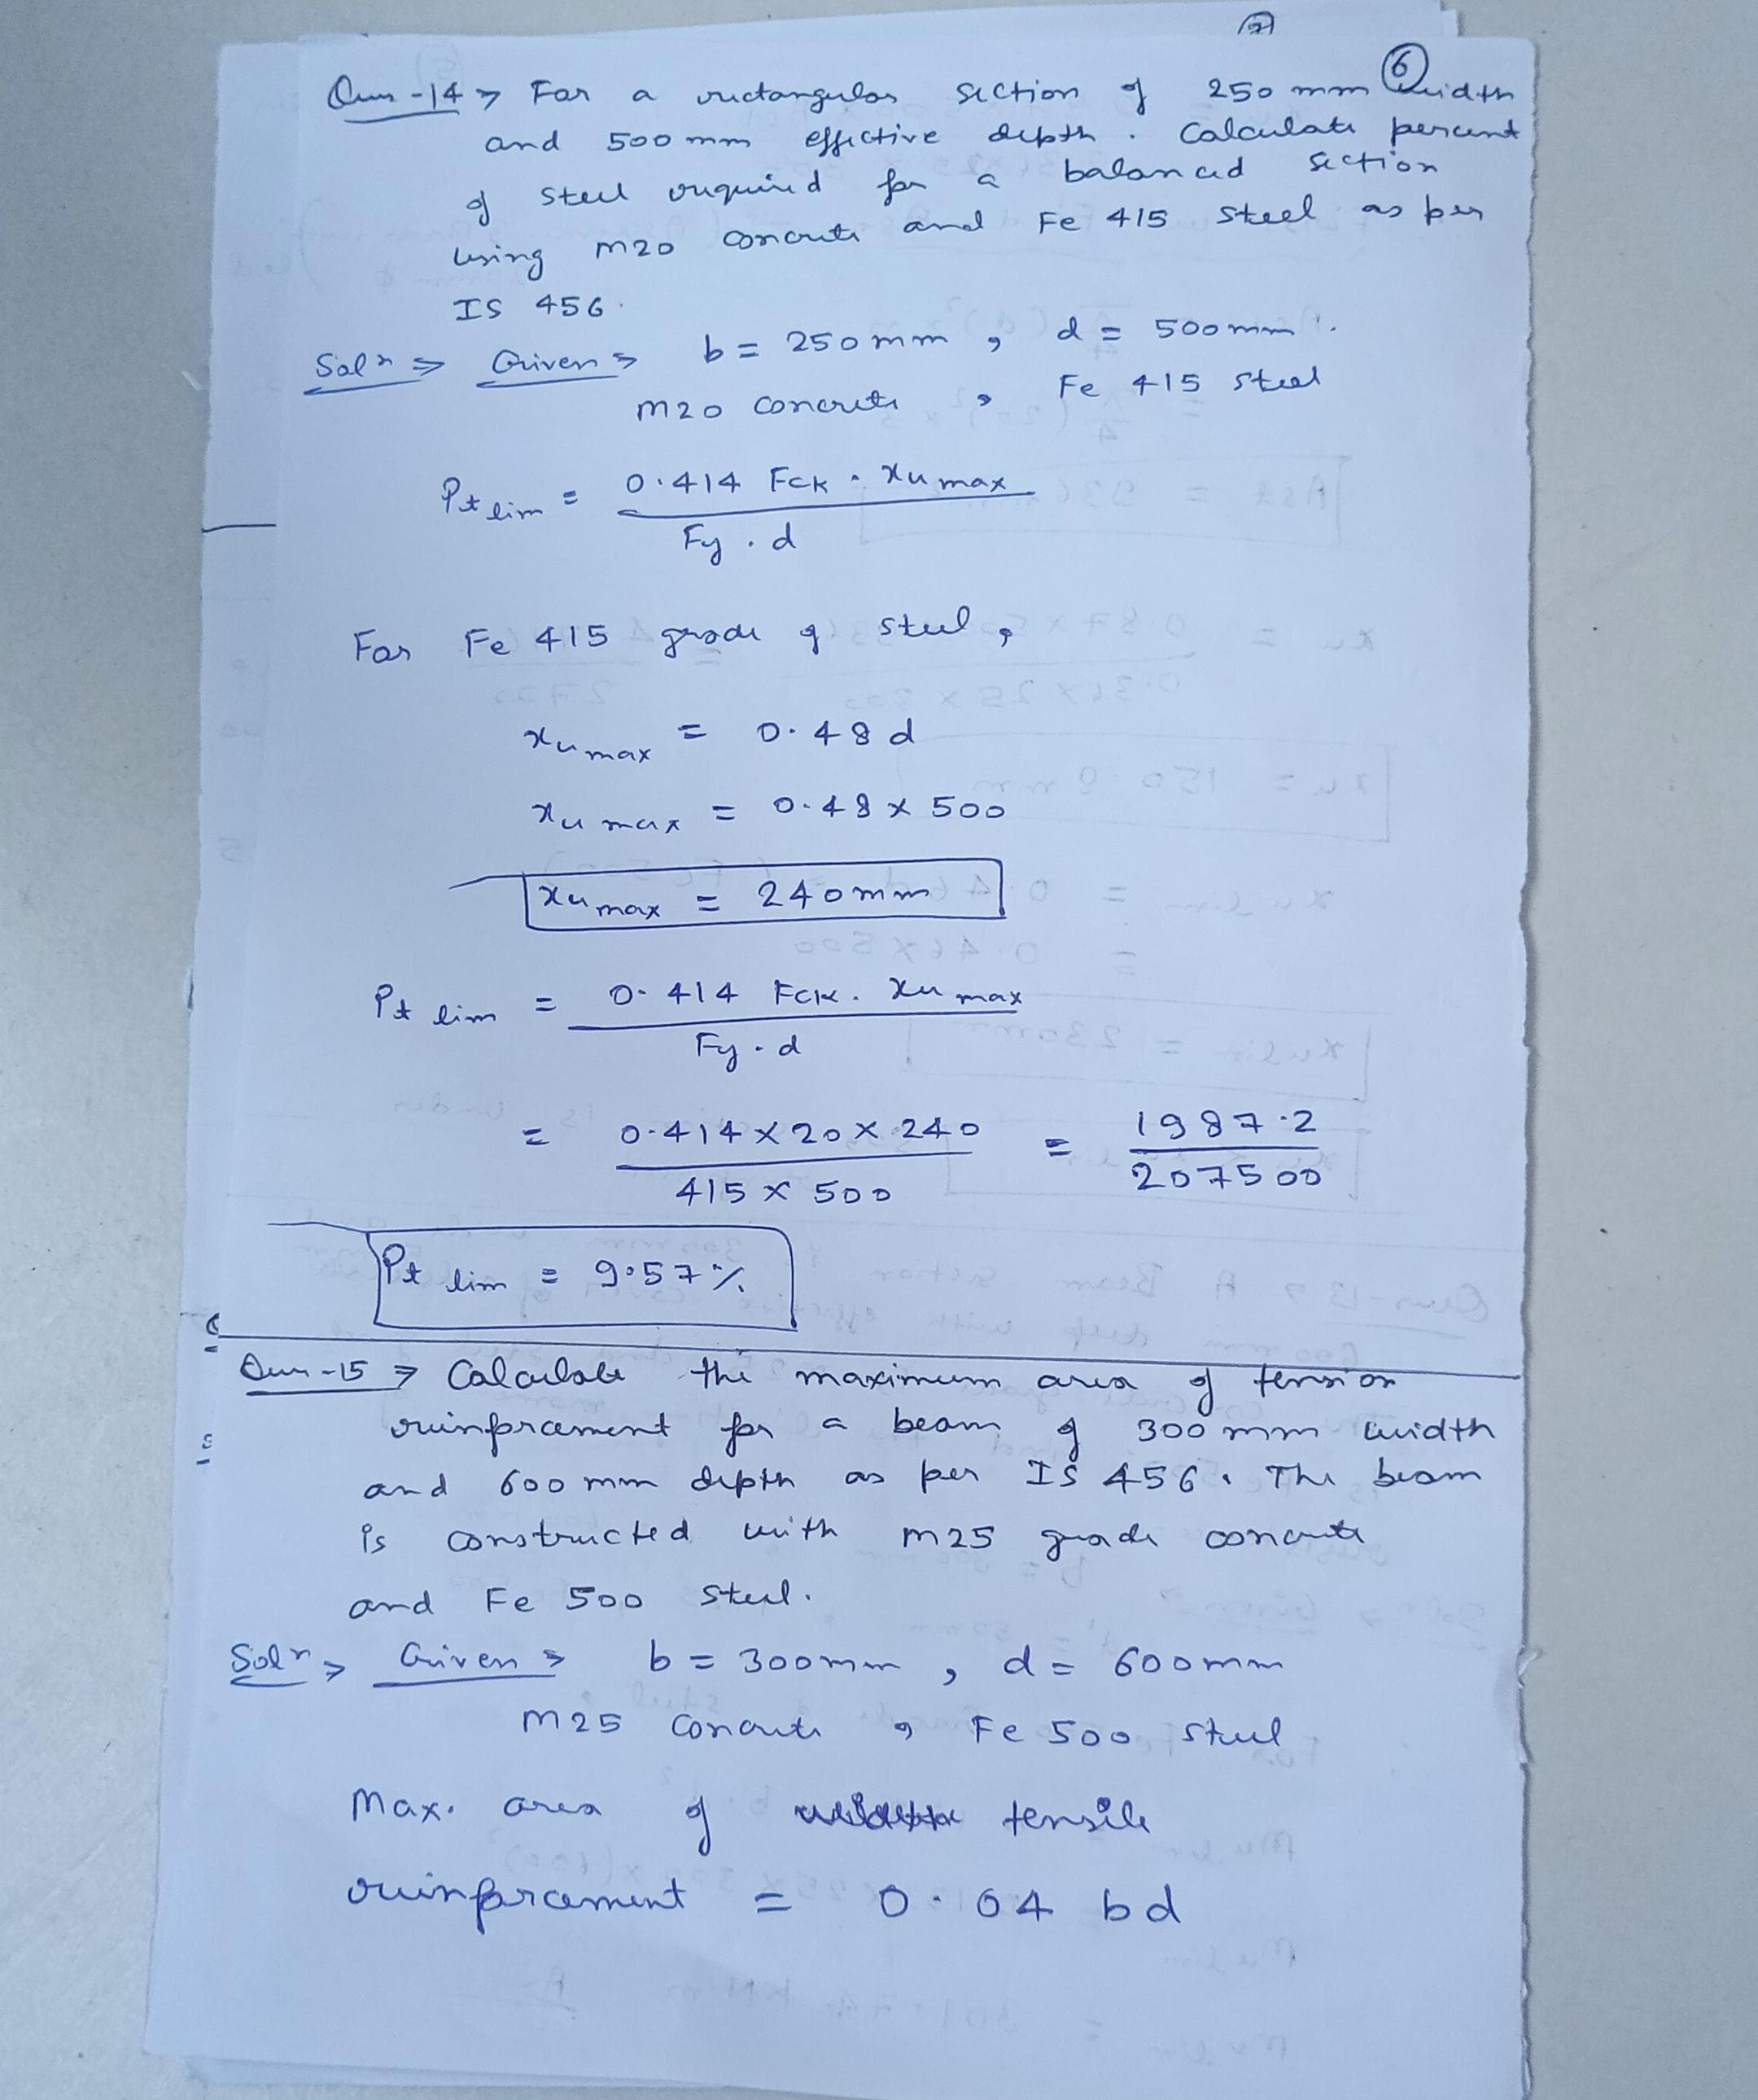 7
6
Ques-14 → For a rectangular section of 250 mm width
and 500 mm effective depth. Calculate percent
of steel required for a balanced section
using M20 concrete and Fe 415 steel as per
IS 456.
Solⁿ ⇒ Given ⇒ b = 250 mm , d = 500 mm.
M20 concrete , Fe 415 steel
Pt lim = 0.414 Fck . xu max
Fy . d
For Fe 415 grade of steel,
xu max = 0.48 d
xu max = 0.48 x 500
xu max = 240 mm
Pt lim = 0.414 Fck . xu max
Fy . d
= 0.414 x 20 x 240 = 1987.2
415 x 500 207500
Pt lim = 9.57 %
Ques-15 ⇒ Calculate the maximum area of tension
reinforcement for a beam of 300 mm width
and 600 mm depth as per IS 456. The beam
is constructed with M25 grade concrete
and Fe 500 steel.
Solⁿ ⇒ Given ⇒ b = 300 mm , d = 600 mm
M25 concrete , Fe 500 steel
Max. area of tensile
reinforcement = 0.04 bd